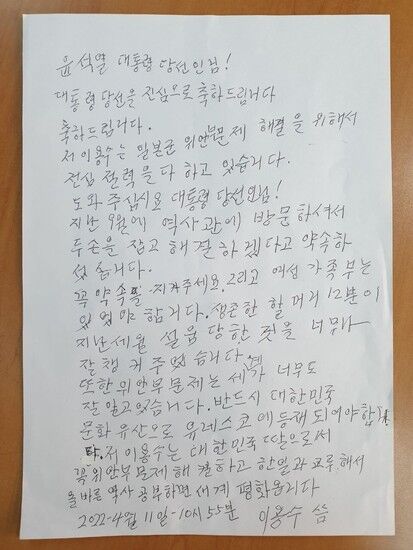 윤석열 대통령 당선인님!
대통령 당선을 진심으로 축하드립니다
축하드립니다.
저 이용수는 일본군 위안부문제 해결을 위해서
전심 전력을 다 하고 있습니다.
도와 주십시요 대통령 당선인님!
지난 9월에 역사관에 방문하셔서
두손을 잡고 해결하겠다고 약속하
셨습니다.
꼭 약속을 지켜주세요. 그리고 여성 가족부는
있었야 합니다. 생존한 할머니 12분이
지난세월 설움 당한 것을 너무나
잘 챙겨 주었습니다.
또한 위안부 문제는 세계가 너무도
잘 알고 있습니다. 반드시 대한민국
문화 유산으로 유레스코에 등재 되어야 합니
다. 저 이용수는 대한민국 딸으로써
꼭 위안부 문제 해결하고 한일과 교류해서
올바른 역사 공부하면 세계 평화옵니다
2022-4월 11일-10시 55분 이용수 씀